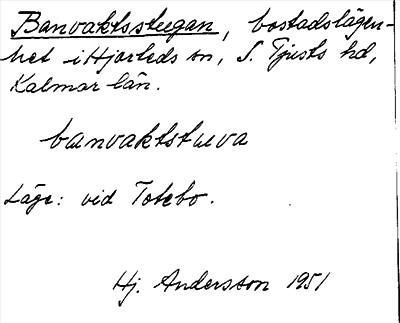 Banvaktsstugan, bostadslägen-
het i Hjorteds sn, S. Tjusts hd,
Kalmar län.
banvaktstuva
Läge: vid Totebo.
Hj. Andersson 1951